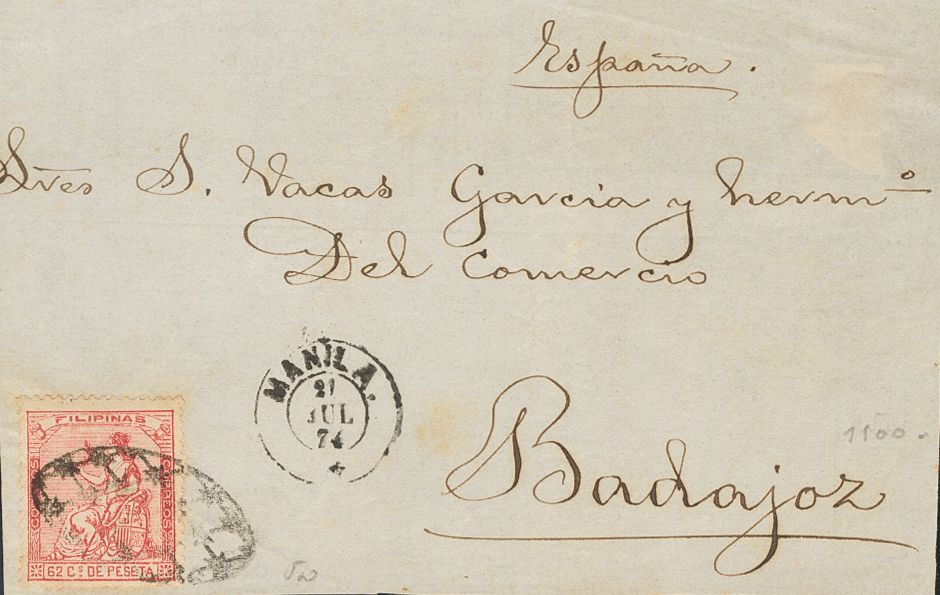 España.
Sres S. Vacas Garcia y hermº
Del Comercio
MANILA.
21
JUL
74
Badajoz
1100.
FILIPINAS
CORREOS
CORREOS
62 Cs DE PESETA